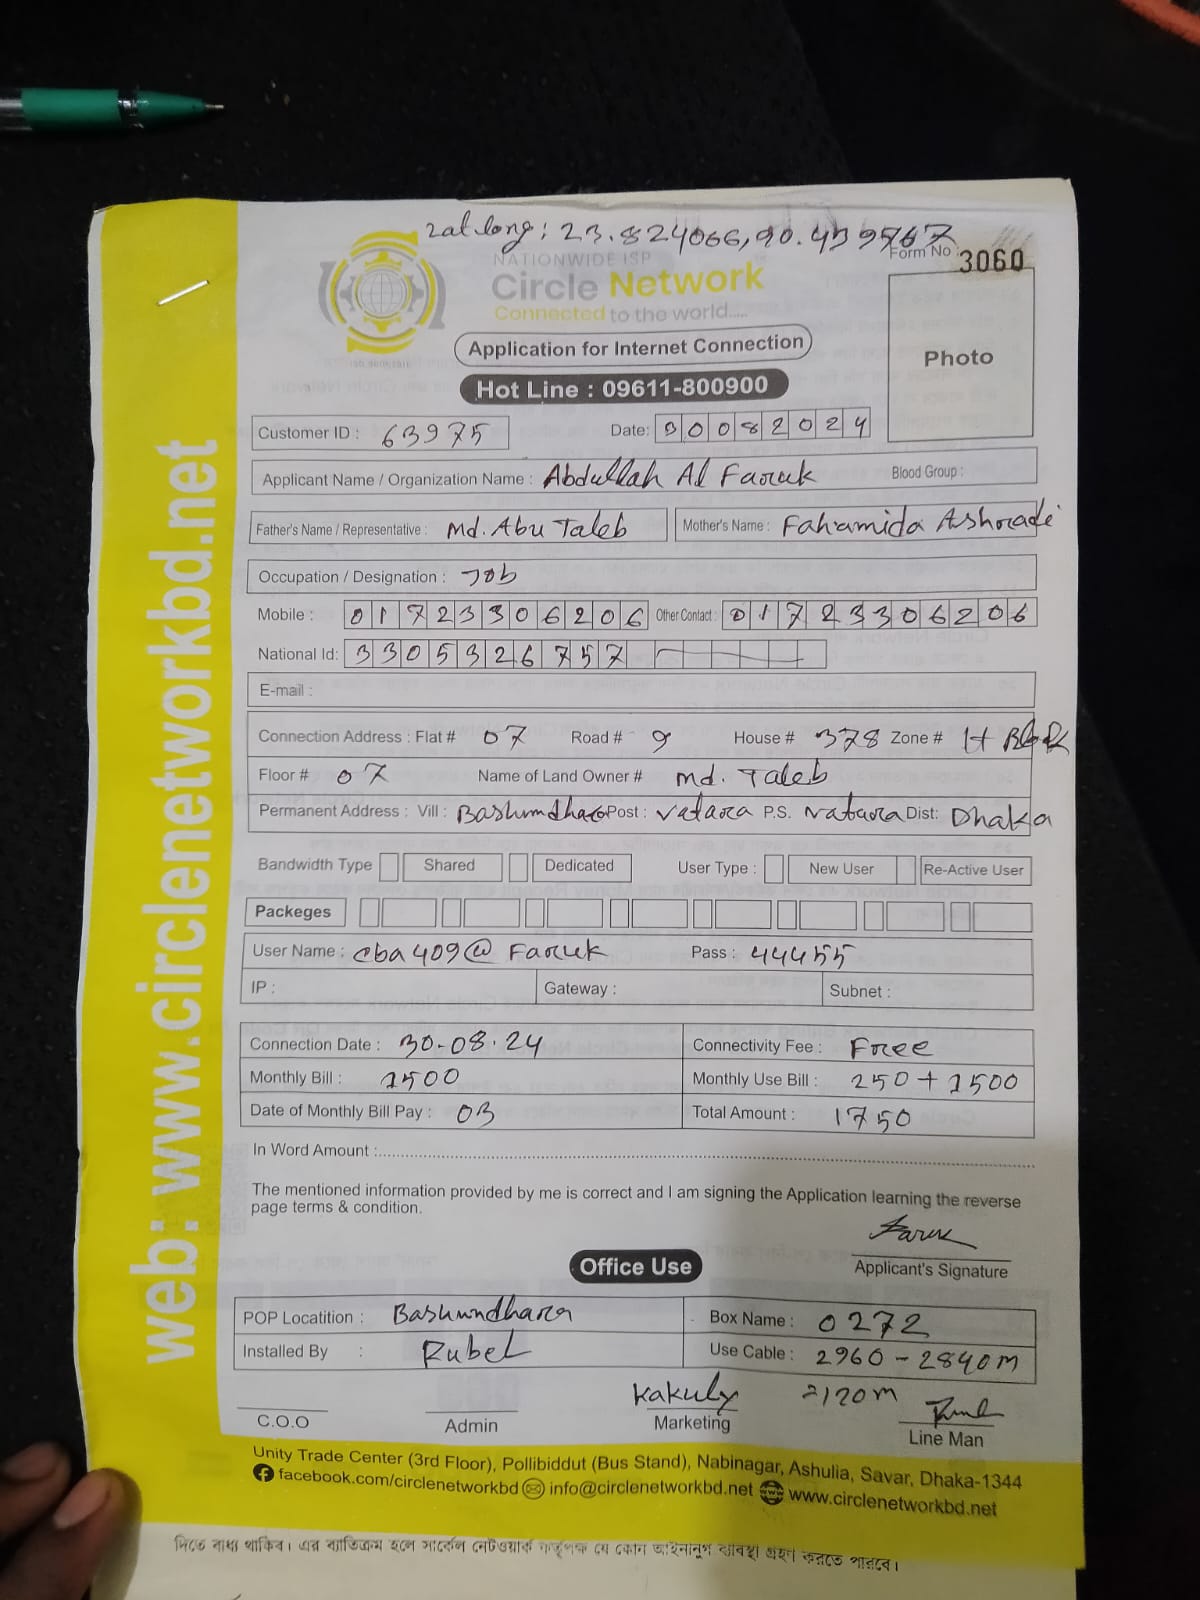 Lat Long: 23.824066, 90.439767
NATIONWIDE ISP
Circle Network
Connected to the world.....
Form No : 3060
Application for Internet Connection
Photo
Hot Line : 09611-800900
Customer ID : 63975 Date: 30082024
Applicant Name / Organization Name : Abdullah Al Faruk Blood Group :
Father's Name / Representative : Md. Abu Taleb Mother's Name : Fahamida Ashrade
Occupation / Designation : Job
Mobile : 01723306206 Other Contact : 01723306206
National Id: 3305326757
E-mail :
Connection Address : Flat # 07 Road # 9 House # 378 Zone # H Block
Floor # 07 Name of Land Owner # Md. Taleb
Permanent Address : Vill : Bashundhara Post : Vatara P.S. Vatara Dist: Dhaka
Bandwidth Type Shared Dedicated User Type : New User Re-Active User
Packeges
User Name : cba409@Faruk Pass : 44455
IP : Gateway : Subnet :
Connection Date : 30-08.24 Connectivity Fee : Free
Monthly Bill : 1500 Monthly Use Bill : 250+1500
Date of Monthly Bill Pay : 03 Total Amount : 1750
In Word Amount :
The mentioned information provided by me is correct and I am signing the Application learning the reverse
page terms & condition.
Faruk
Applicant's Signature
Office Use
POP Locatition : Bashundhara Box Name : 0272
Installed By : Rubel Use Cable : 2960-2840M
Kakuly =120M
C.O.O Admin Marketing Line Man
Unity Trade Center (3rd Floor), Pollibiddut (Bus Stand), Nabinagar, Ashulia, Savar, Dhaka-1344
facebook.com/circlenetworkbd info@circlenetworkbd.net www.circlenetworkbd.net
web: www.circlenetworkbd.net
দিতে বাধ্য থাকিব। এর ব্যতিক্রম হলে সার্কেল নেটওয়ার্ক কর্তৃপক্ষ যে কোন আইনানুগ ব্যবস্থা গ্রহণ করতে পারবে।